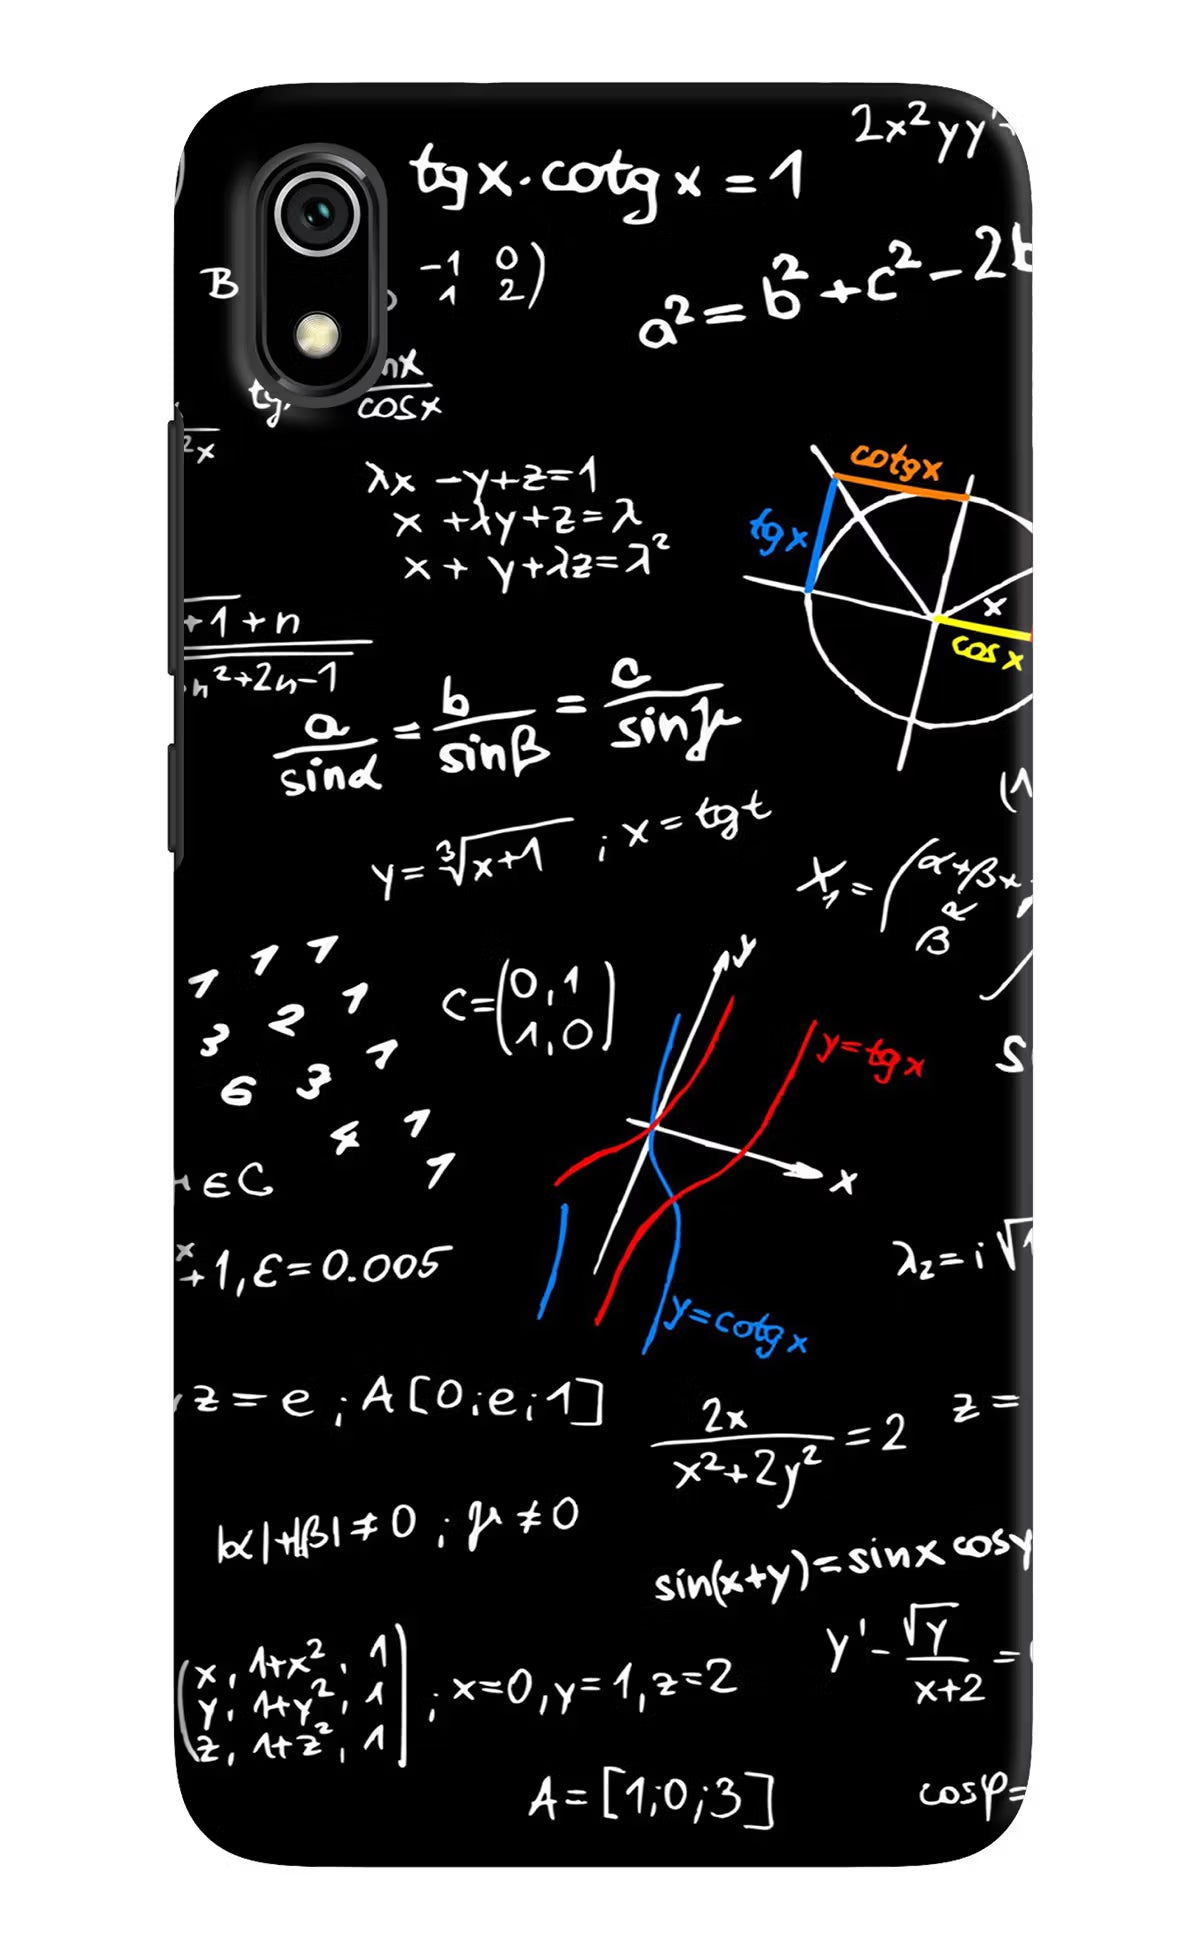 2x²yy'
tgx·cotgx=1
B
-1 0
1 2)
a²=b²+c²-2
cosx
2x
cotgx
λx -y+z=1
x +λy+z=λ
x+ y+λz=λ²
tgx
x
cosx
+1+n
n²+2n-1
a/sinα = b/sinβ = c/sinγ
y=∛x+1 ; x=tgt
X₁=(α+βx
β
1 1 1
3 2 1
6 3 1
4 1
1
C=(0,1
1,0)
y
y=tgx
x
∈C
+1,ε=0.005
λ₂=i√
y=cotgx
z=e ; A[0;e;1]
2x/x²+2y² =2
z=
|α|+|β|≠0 ; μ≠0
sin(x+y)=sinx cosy
y'-√y/x+2 =
(x, 1+x², 1
y, 1+y², 1
z, 1+z², 1) ; x=0,y=1,z=2
A=[1;0;3]
cosφ=